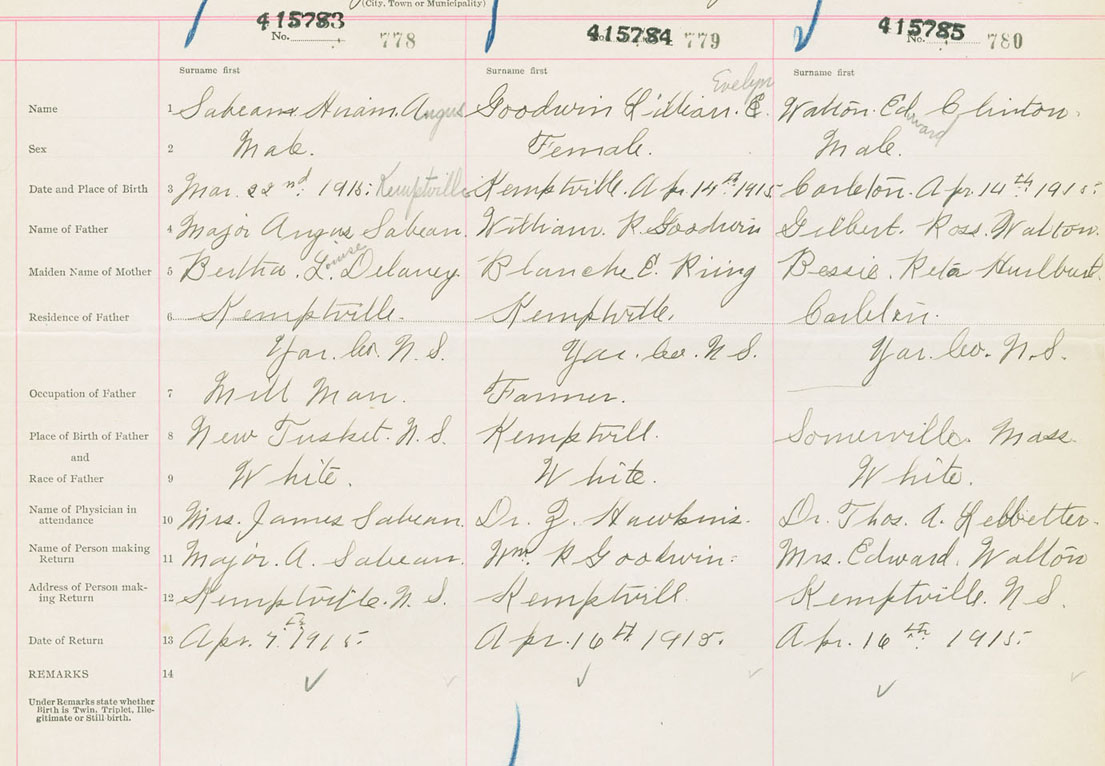 (City, Town or Municipality)
415783 No. 778
415784 779
415785 No. 780
Surname first Surname first Surname first
Evelyn
Name 1 Sabean Hiram. Angus Goodwin Lillian. E. Walton. Edward Clinton.
Sex 2 Male. Female. Male.
Date and Place of Birth 3 Mar. 22nd. 1915. Kemptville Kemptville. Apr. 14th 1915 Carleton. Apr. 14th 1915.
Name of Father 4 Major Angus Sabean. William. R. Goodwin Gilbert. Ross. Walton.
Louise
Maiden Name of Mother 5 Bertha. L. Delaney. Blanche E. Ring Bessie. Reta Hurlburt.
Residence of Father 6 Kemptville. Kemptville. Carleton.
Yar. Co. N. S. Yar. Co. N S. Yar. Co. N. S.
Occupation of Father 7 Mill Man. Farmer.
Place of Birth of Father 8 New Tusket. N. S. Kemptvill. Somerville. Mass.
and
Race of Father 9 White. White. White.
Name of Physician in
attendance 10 Mrs. James Sabean. Dr. Z. Hawkins. Dr. Thos. A. Lebbetter.
Name of Person making
Return 11 Major. A. Sabean. Wm. R Goodwin. Mrs. Edward. Walton
Address of Person mak-
ing Return 12 Kemptville. N. S. Kemptvill. Kemptville. N S.
Date of Return 13 Apr. 7th 1915. Apr. 16th 1915. Apr. 16th 1915.
REMARKS 14
Under Remarks state whether
Birth is Twin, Triplet, Ille-
gitimate or Still-birth.